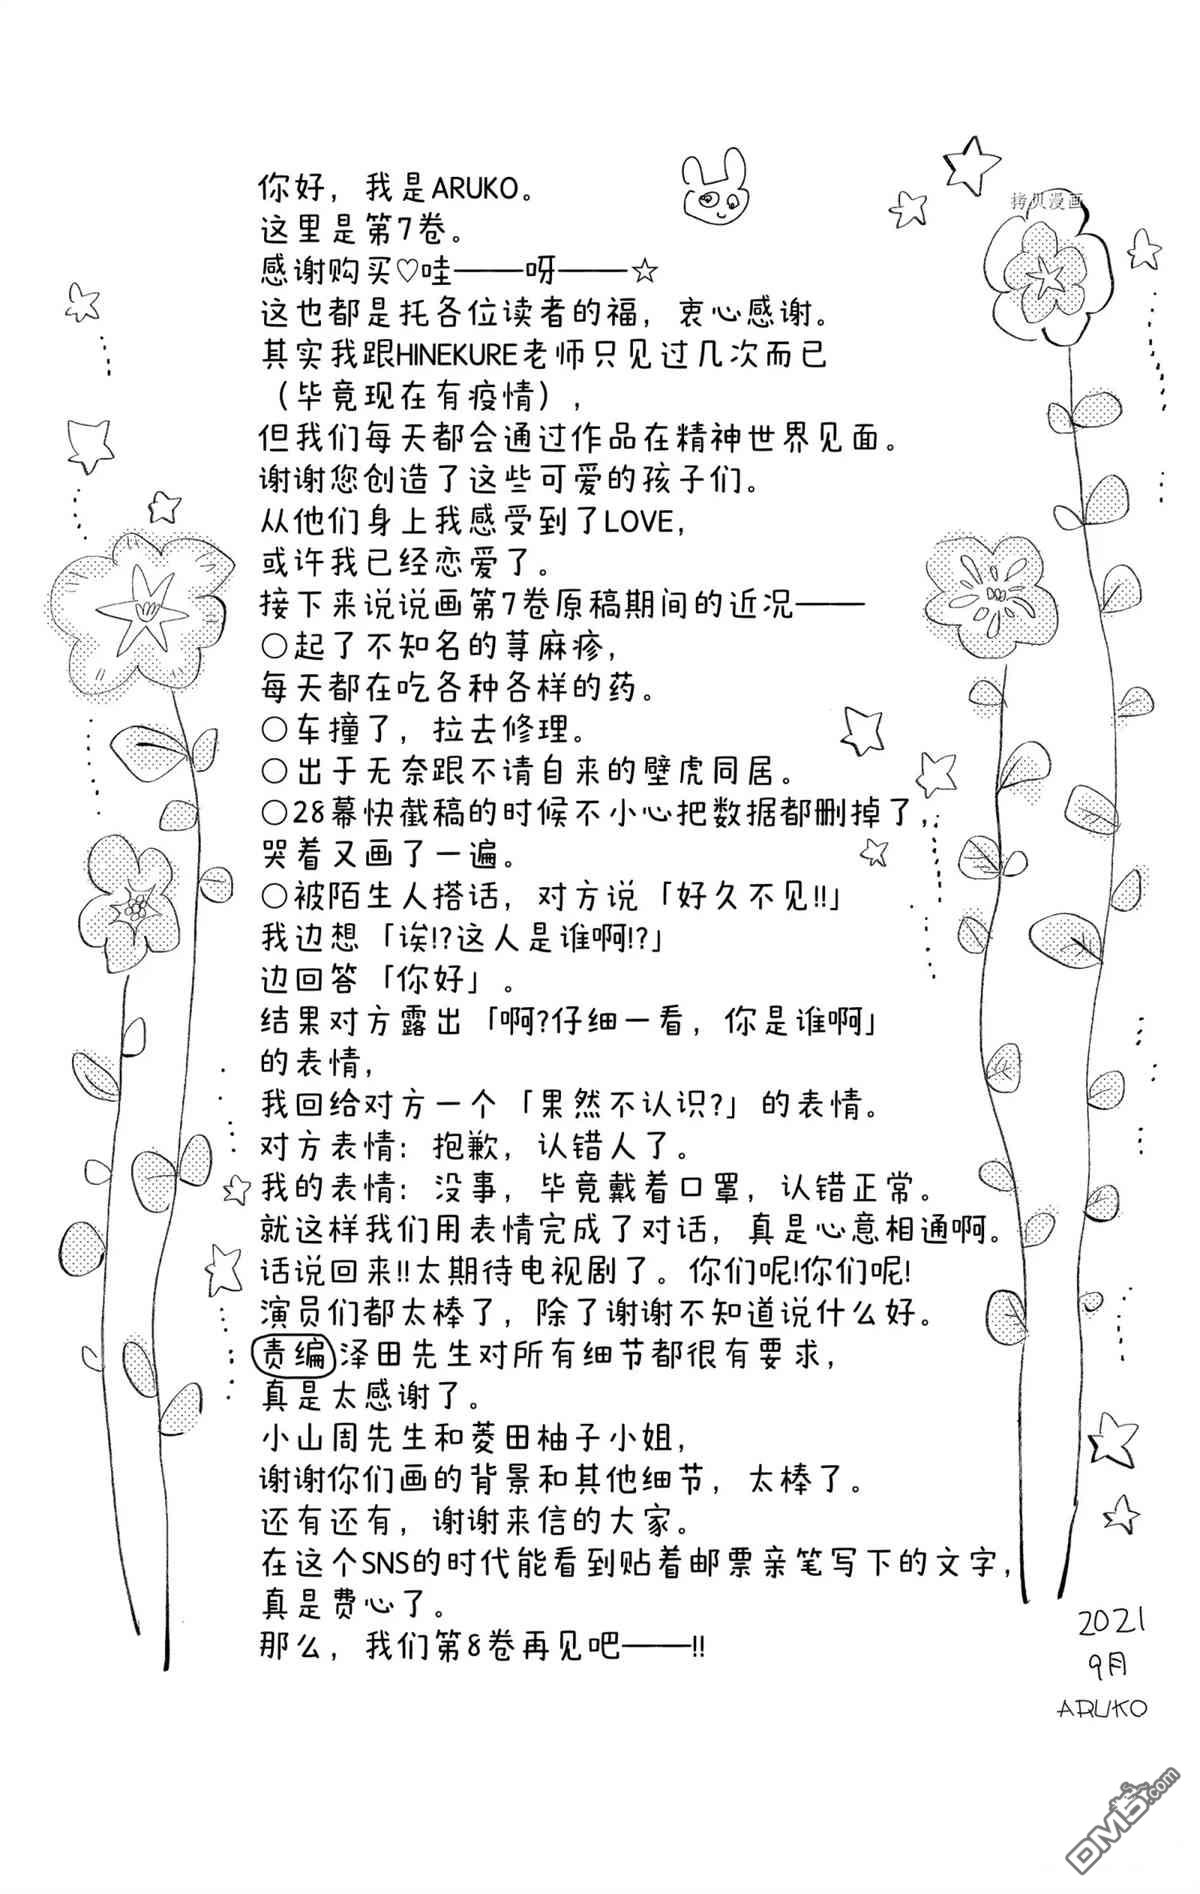 你好，我是ARUKO。
这里是第7卷。
感谢购买♡哇——呀——☆
这也都是托各位读者的福，衷心感谢。
其实我跟HINEKURE老师只见过几次而已
（毕竟现在有疫情），
但我们每天都会通过作品在精神世界见面。
谢谢您创造了这些可爱的孩子们。
从他们身上我感受到了LOVE，
或许我已经恋爱了。
接下来说说画第7卷原稿期间的近况——
○起了不知名的荨麻疹，
每天都在吃各种各样的药。
○车撞了，拉去修理。
○出于无奈跟不请自来的壁虎同居。
○28幕快截稿的时候不小心把数据都删掉了，
哭着又画了一遍。
○被陌生人搭话，对方说「好久不见!!」
我边想「诶!?这人是谁啊!?」
边回答「你好」。
结果对方露出「啊?仔细一看，你是谁啊」
的表情，
我回给对方一个「果然不认识?」的表情。
对方表情：抱歉，认错人了。
我的表情：没事，毕竟戴着口罩，认错正常。
就这样我们用表情完成了对话，真是心意相通啊。
话说回来!!太期待电视剧了。你们呢!你们呢!
演员们都太棒了，除了谢谢不知道说什么好。
责编泽田先生对所有细节都很有要求，
真是太感谢了。
小山周先生和菱田柚子小姐，
谢谢你们画的背景和其他细节，太棒了。
还有还有，谢谢来信的大家。
在这个SNS的时代能看到贴着邮票亲笔写下的文字，
真是费心了。
那么，我们第8卷再见吧——!!
拷贝漫画
2021
9月
ARUKO
DM5.com